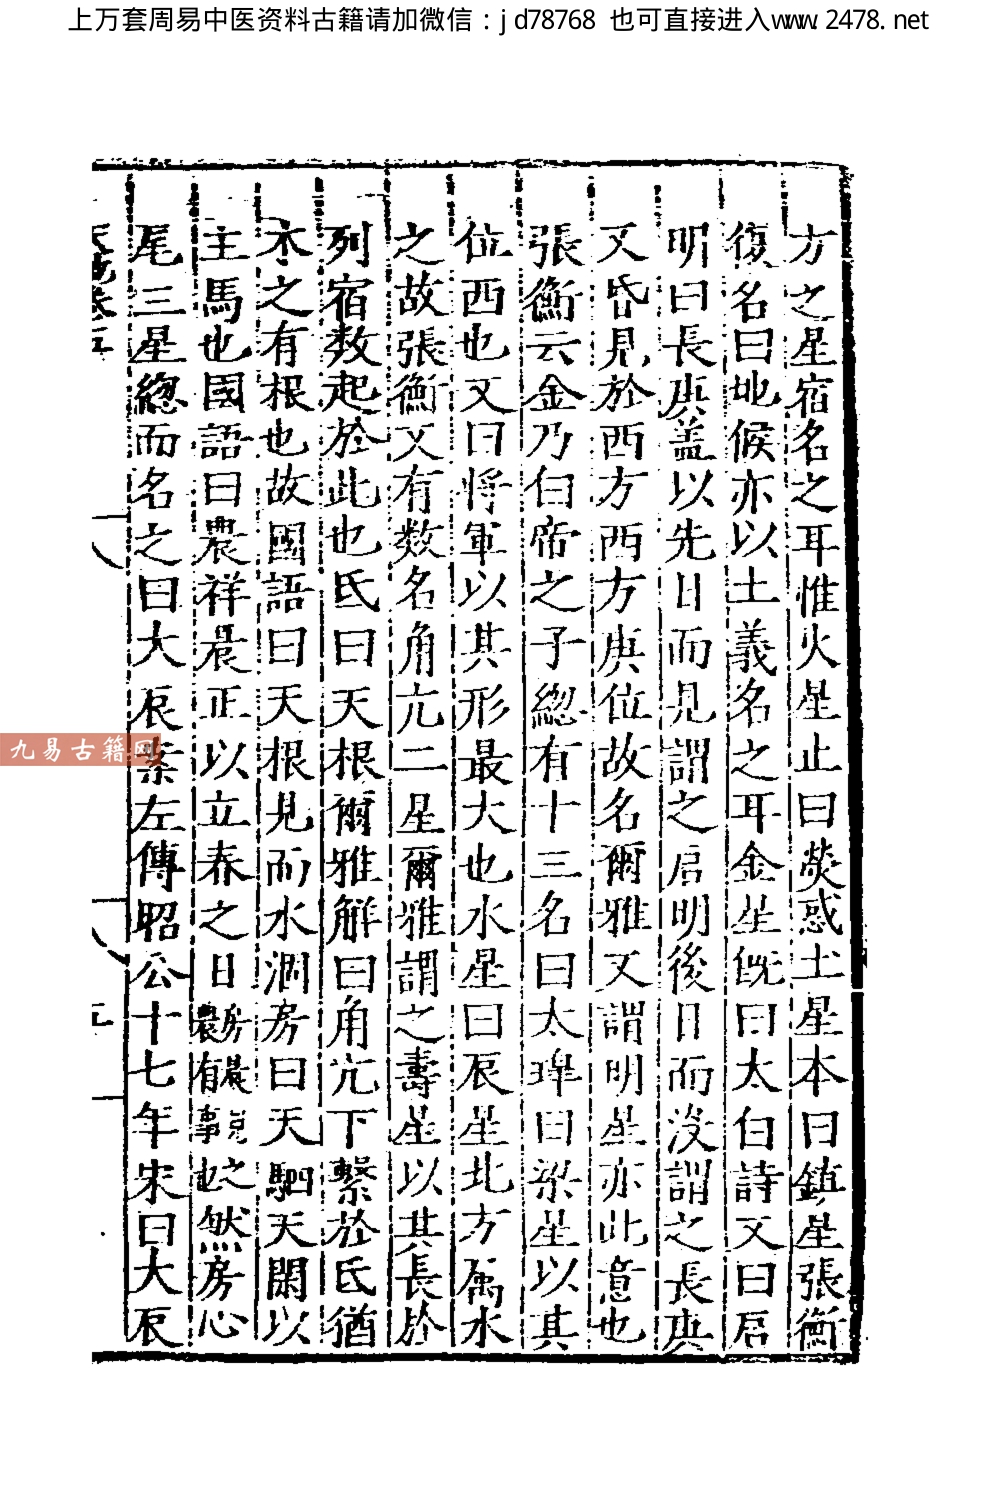 上万套周易中医资料古籍请加微信：jd78768 也可直接进入www.2478.net
方之星宿名之耳惟火星止曰熒惑土星本曰鎮星張衡
復名曰地候亦以土義名之耳金星既曰太白詩又曰启
明曰長庚盖以先日而見謂之启明後日而没謂之長庚
又昏見於西方西方庚位故名爾雅又謂明星亦此意也
張衡云金乃白帝之子緫有十三名曰太皞曰梁星以其
位西也又曰将軍以其形最大也水星曰辰星北方属水
之故張衡又有数名角亢二星爾雅謂之壽星以其長於
列宿数起於此也氐曰天根爾雅解曰角亢下繫於氐猶
木之有根也故國語曰天根見而水涸房曰天駟天閑以
主馬也國語曰農祥晨正以立春之日房晨見農有事也之然房心
尾三星緫而名之曰大辰案左傳昭公十七年宋曰大辰
卷三
九易古籍网